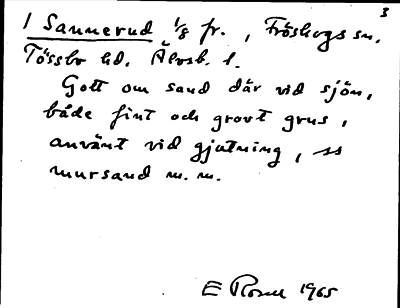 3
1 Sannerud 1/8 fr., Fröskogs sn.
Tössbo hd. Älvsb. l.
Gott om sand där vid sjön,
både fint och grovt grus,
använt vid gjutning, ss
mursand m. m.
E Rosell 1965